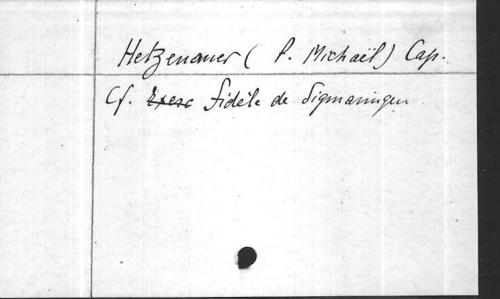 Hetzenauer (P. Michaël) Cap.
Cf. fidèle de Sigmaringen